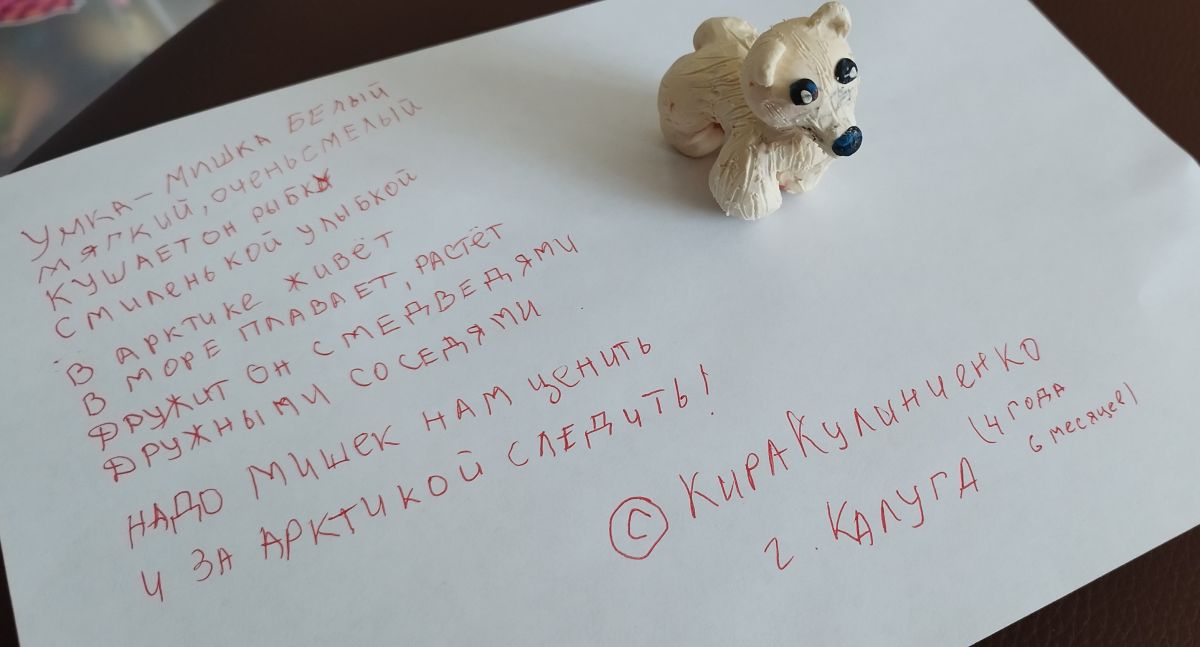 УМКА - МИШКА БЕЛЫЙ
МЯГКИЙ, ОЧЕНЬ СМЕЛЫЙ
КУШАЕТ ОН РЫБКУ
С МИЛЕНЬКОЙ УЛЫБКОЙ
В АРКТИКЕ ЖИВЁТ
В МОРЕ ПЛАВАЕТ, РАСТЁТ
ДРУЖИТ ОН С МЕДВЕДЯМИ
ДРУЖНЫМИ СОСЕДЯМИ
НАДО МИШЕК НАМ ЦЕНИТЬ
И ЗА АРКТИКОЙ СЛЕДИТЬ!
© КИРА КУЛИНИЧЕНКО
(4 ГОДА
6 МЕСЯЦЕВ)
г. КАЛУГА